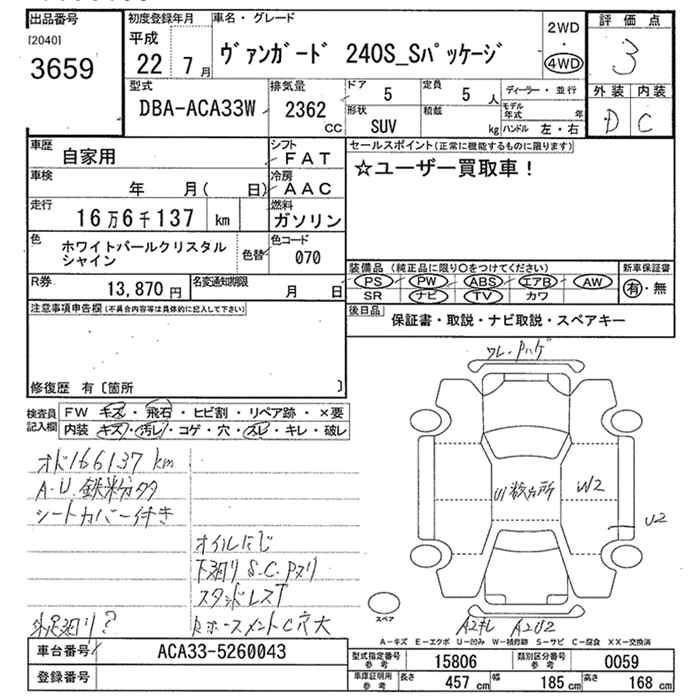 出品番号 初度登録年月 車名・グレード 評価点
[2040]
3659 平成 22 7月 ヴァンガード 240S_Sパッケージ 2WD・4WD 3
型式 排気量 ドア 定員 ディーラー・並行 外装 内装
DBA-ACA33W 2362 cc 5 5人 モデル年式 年 D C
形状 SUV 積載 kg ハンドル 左・右
車歴 自家用 シフト FAT セールスポイント(正常に機能するものに限ります)
車検 年 月( 日) 冷房 AAC ☆ユーザー買取車!
走行 16万6千137 km 燃料 ガソリン
色 ホワイトパールクリスタル 色替 色コード 070
シャイン
装備品 (純正品に限り○をつけてください) 新車保証書
R券 13,870円 名変通知期限 月 日 PS PW ABS エアB AW 有・無
SR ナビ TV カワ
注意事項申告欄(不具合内容等は具体的に記入して下さい) 後日品 保証書・取説・ナビ取説・スペアキー
修復歴 有〔箇所 〕
検査員記入欄 FW キズ・飛石・ヒビ割・リペア跡・×要
内装 キズ・汚レ・コゲ・穴・スレ・キレ・破レ
オド166137km
A.U.鉄粉タタ
シートカバー付き
オイルにじ
下廻りS.C.Pヌリ
スタンドレスT
Rホースメント C穴大
ワレ・Pハゲ
U1数カ所 W2
U2
スペア
A2キレ A2U2
A-キズ E-エクボ U-凹み W-補修跡 S-サビ C-腐食 XX-交換済
車台番号 ACA33-5260043 型式指定番号 参考 15806 類別区分番号 参考 0059
登録番号 車庫証明用 参考 長さ 457cm 幅 185cm 高さ 168cm